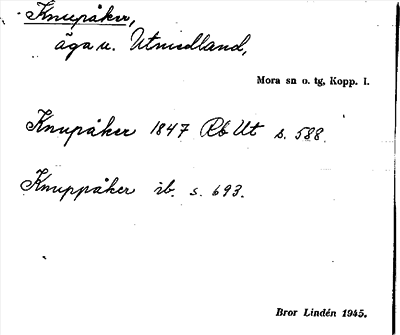 Knupåker,
äga u. Utmedland,
Mora sn o. tg, Kopp. l.
Knupåker 1847 Rb Ut s. 588.
Knuppåker ib. s. 693.
Bror Lindén 1945.